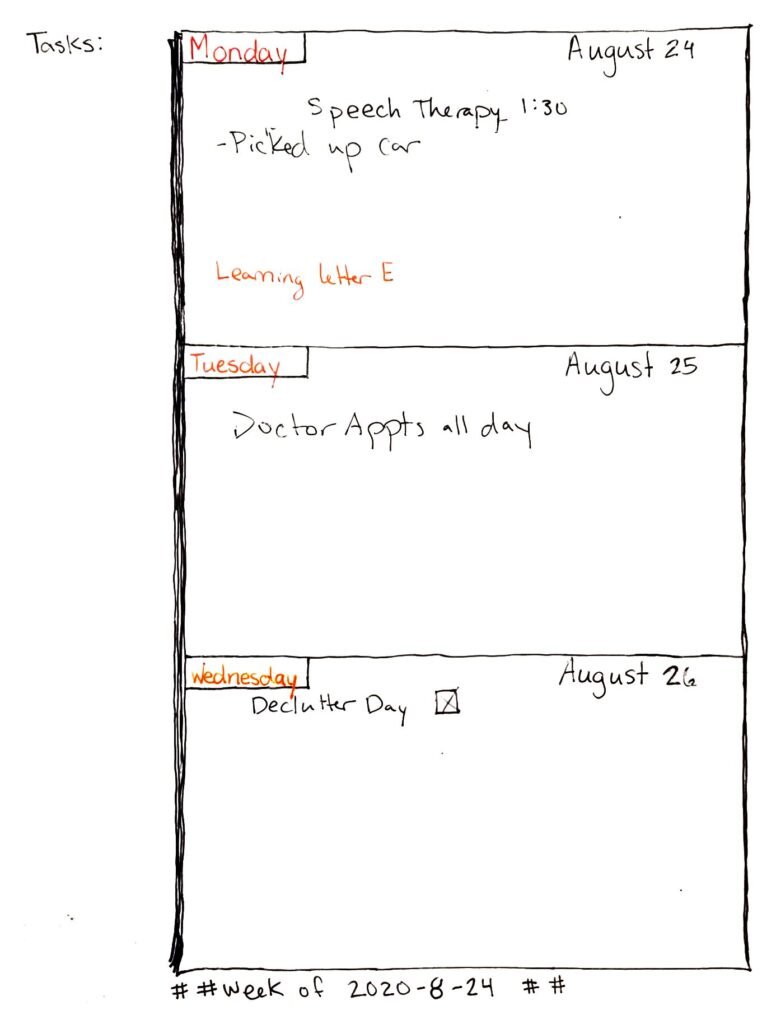 Tasks:
Monday
August 24
Speech Therapy 1:30
-Picked up car
Learning letter E
Tuesday
August 25
Doctor Appts all day
Wednesday
August 26
Declutter Day ☒
# #week of 2020-8-24 # #